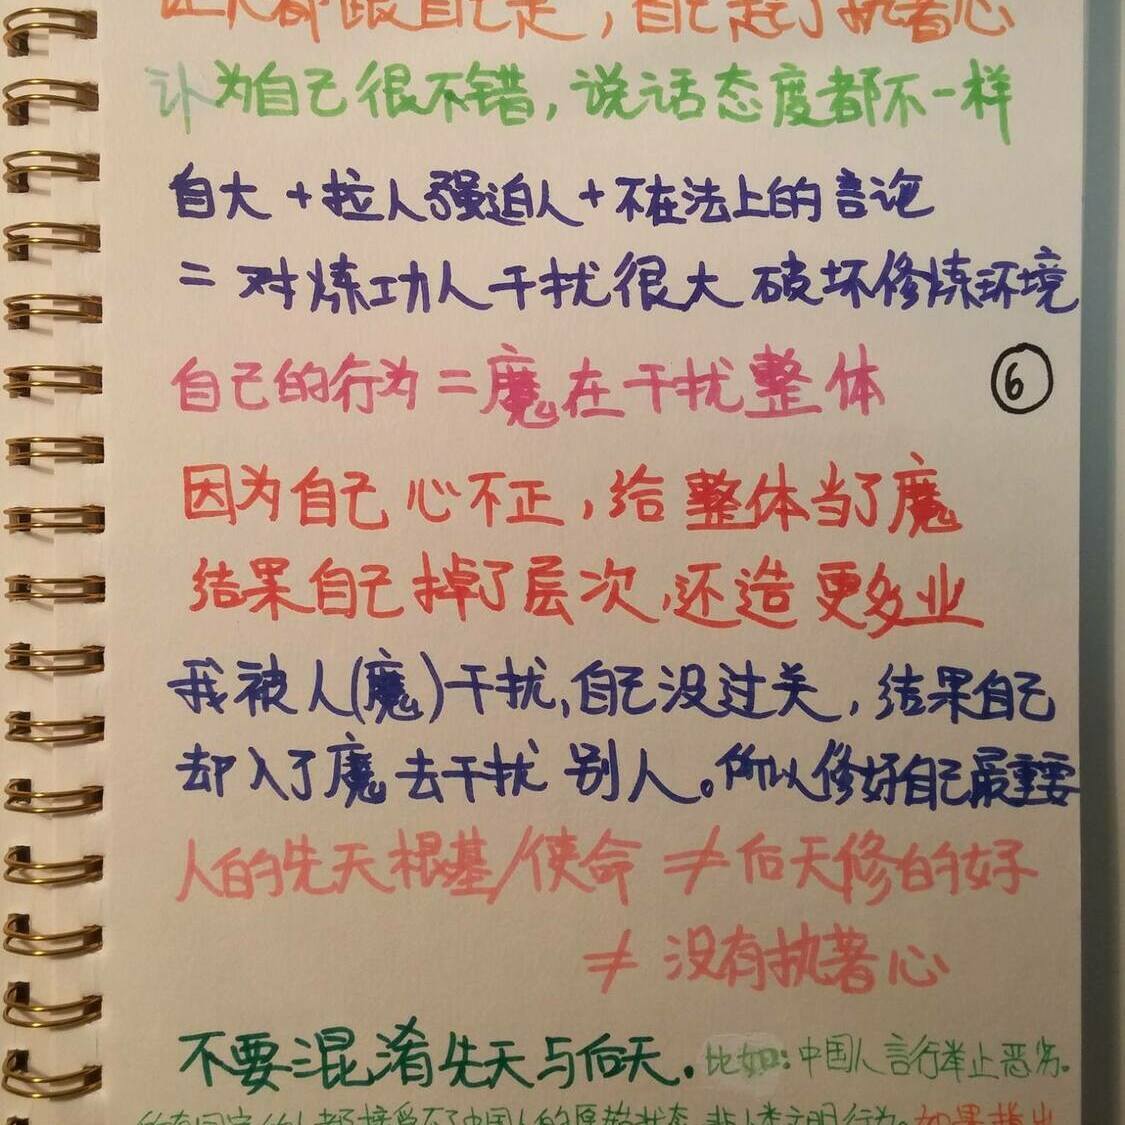 让人都跟自己走，自己起了执著心
认为自己很不错，说话态度都不一样
自大 + 拉人强迫人 + 不在法上的言论
= 对炼功人干扰很大 破坏修炼环境
自己的行为 = 魔在干扰整体
⑥
因为自己心不正，给整体当了魔
结果自己掉了层次，还造更多业
我被人(魔)干扰，自己没过关，结果自己
却入了魔去干扰别人。所以修好自己最重要
人的先天根基/使命 ≠ 后天修的好
≠ 没有执著心
不要混淆先天与后天。比如：中国人言行举止恶劣。
所有国家的人都接受不了中国人的原始状态，非人类文明行为。如果指出